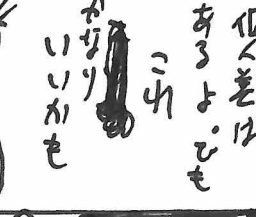 個人差は
あるよ。でも
これ
かなり
いいかも